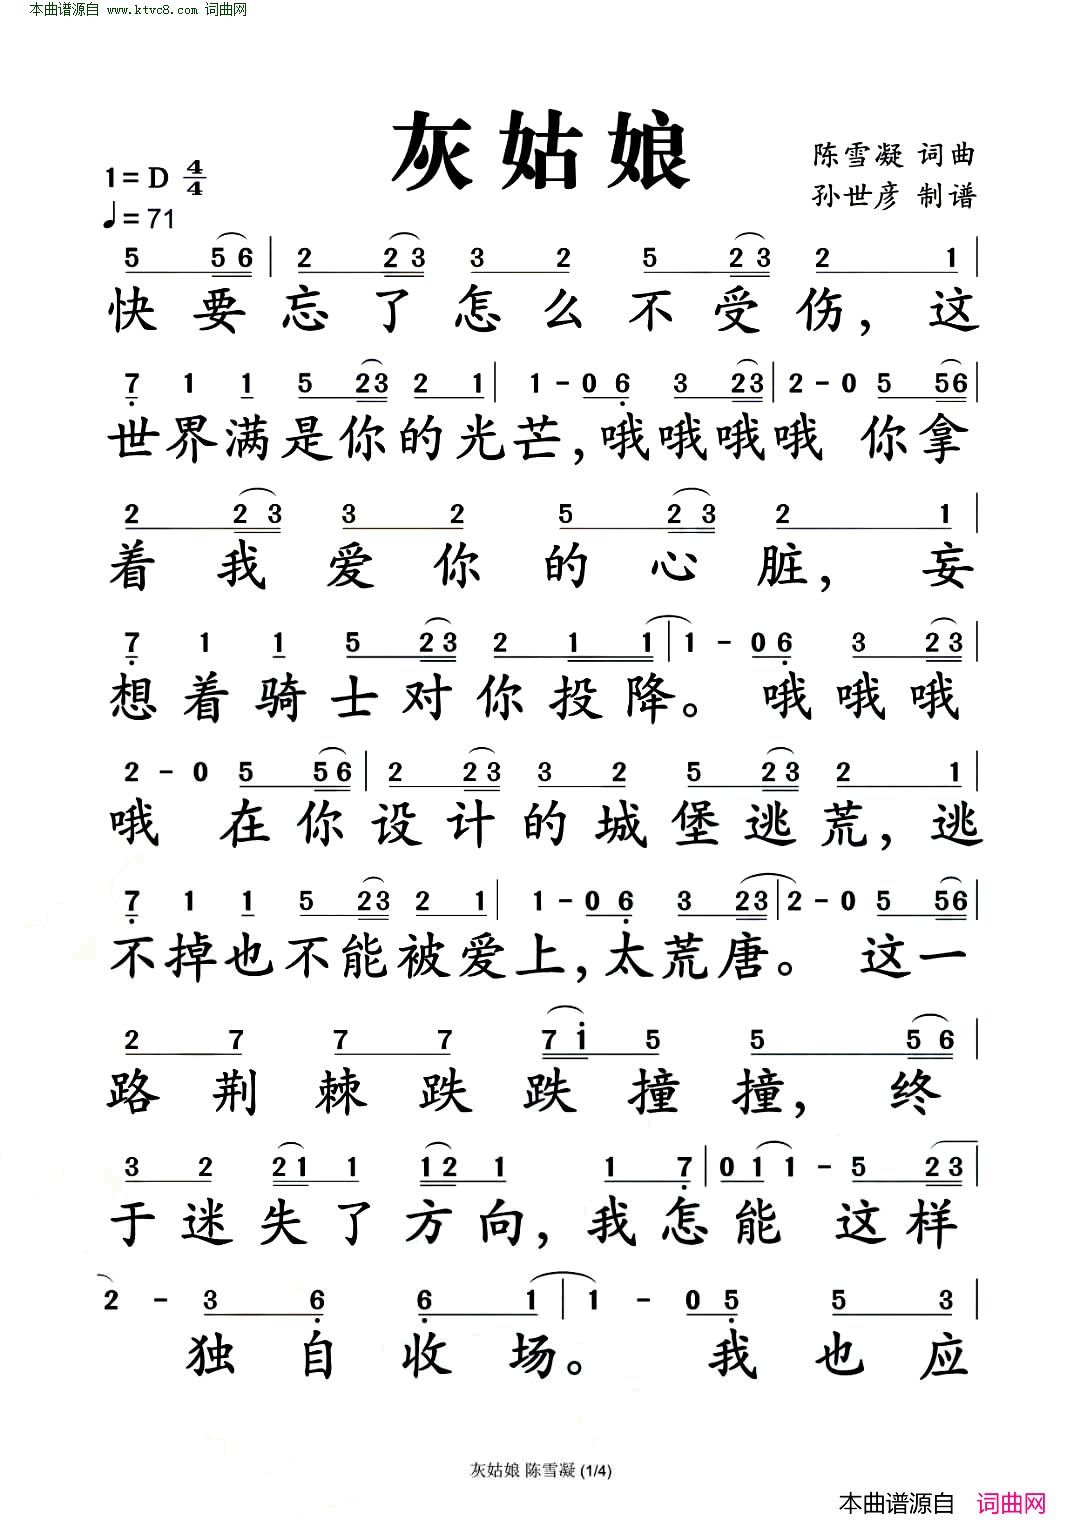 本曲谱源自 www.ktvc8.com 词曲网
灰姑娘
陈雪凝 词曲
孙世彦 制谱
1=D 4/4
♩=71
5 5 6 | 2 2 3 3 2 5 2 3 2 1 |
快要忘了怎么不受伤，这
7̣ 1 1 5 2 3 2 1 | 1 - 0 6̣ 3 2 3 | 2 - 0 5 5 6 |
世界满是你的光芒，哦哦哦哦 你拿
2 2 3 3 2 5 2 3 2 1 |
着我爱你的心脏，妄
7̣ 1 1 5 2 3 2 1 1 | 1 - 0 6̣ 3 2 3 |
想着骑士对你投降。 哦哦哦
2 - 0 5 5 6 | 2 2 3 3 2 5 2 3 2 1 |
哦 在你设计的城堡逃荒，逃
7̣ 1 1 5 2 3 2 1 | 1 - 0 6̣ 3 2 3 | 2 - 0 5 5 6 |
不掉也不能被爱上，太荒唐。 这一
2 7 7 7 7 1̇ 5 5 5 6 |
路荆棘跌跌撞撞，终
3 2 2 1 1 1 2 1 1 7̣ | 0 1 1 - 5 2 3 |
于迷失了方向，我怎能 这样
2 - 3 6̣ 6̣ 1 | 1 - 0 5̣ 5 3 |
独自收场。 我也应
灰姑娘 陈雪凝 (1/4)
本曲谱源自 词曲网